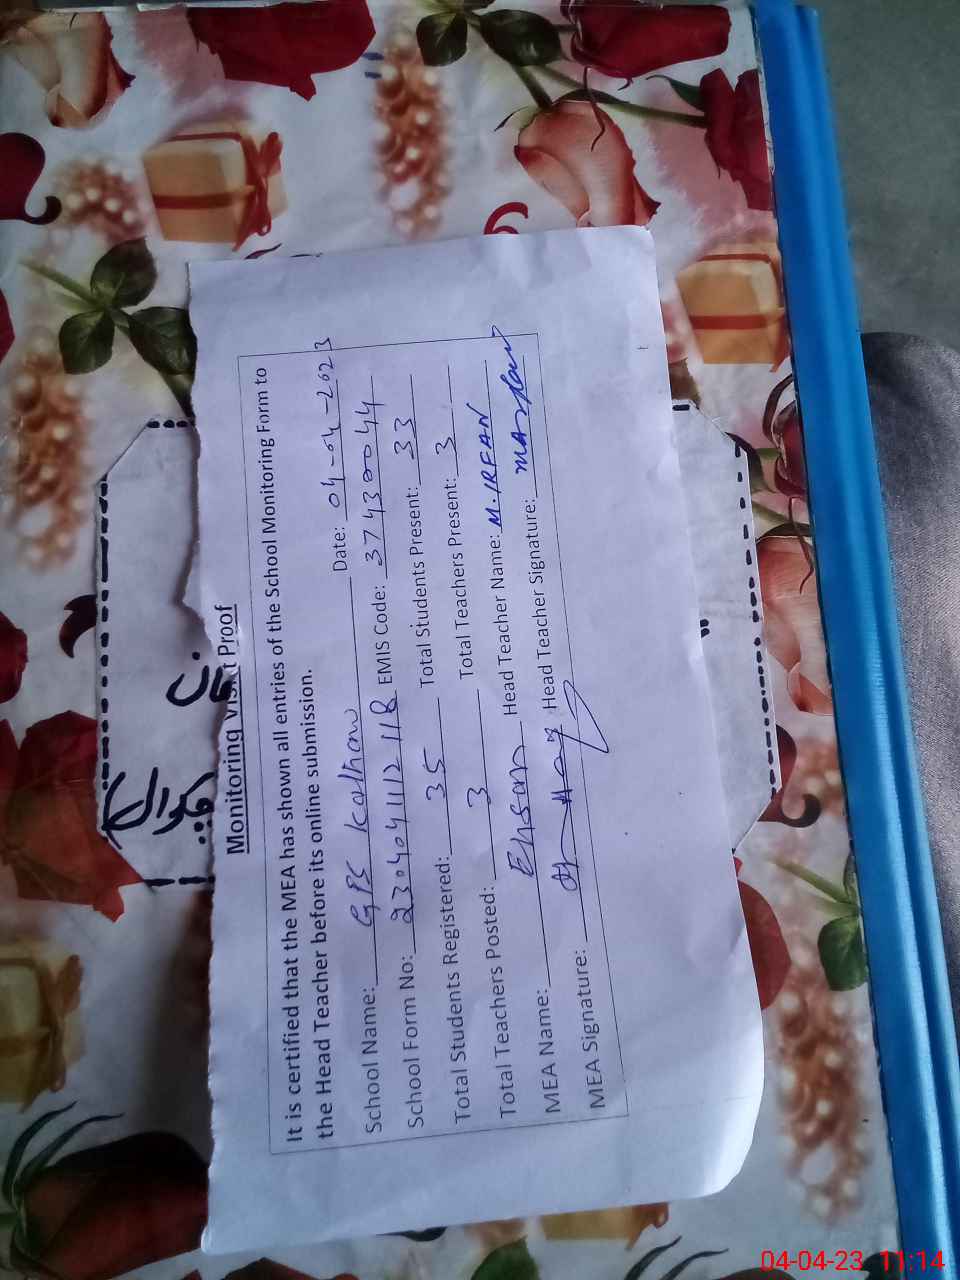 Monitoring Visit Proof
It is certified that the MEA has shown all entries of the School Monitoring Form to
the Head Teacher before its online submission.
School Name: GPS Kalhow Date: 04-04-2023
School Form No: 230404112118 EMIS Code: 37430044
Total Students Registered: 35 Total Students Present: 33
Total Teachers Posted: 3 Total Teachers Present: 3
MEA Name: Ehsan Head Teacher Name: M.IRFAN
MEA Signature: Head Teacher Signature:
04-04-23 11:14